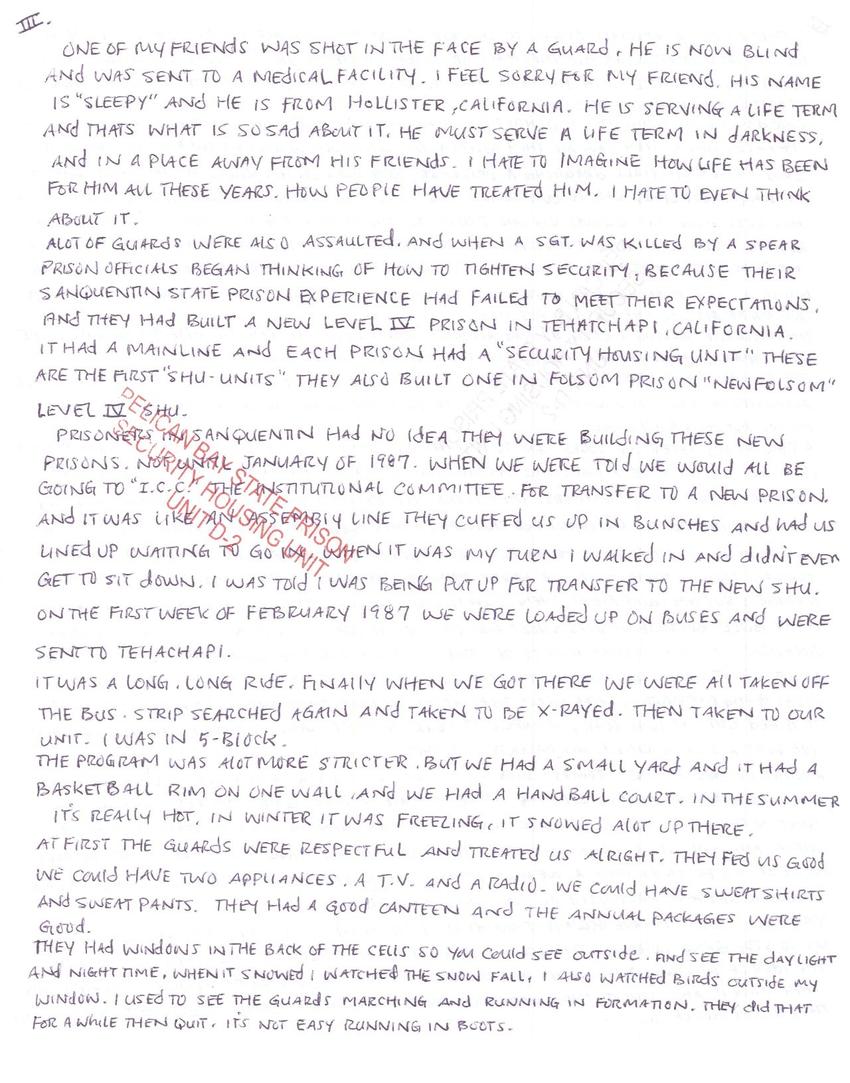 III.
ONE OF MY FRIENDS WAS SHOT IN THE FACE BY A GUARD, HE IS NOW BLIND
AND WAS SENT TO A MEDICAL FACILITY. I FEEL SORRY FOR MY FRIEND. HIS NAME
IS "SLEEPY" AND HE IS FROM HOLLISTER, CALIFORNIA. HE IS SERVING A LIFE TERM
AND THATS WHAT IS SO SAD ABOUT IT. HE MUST SERVE A LIFE TERM IN DARKNESS,
AND IN A PLACE AWAY FROM HIS FRIENDS. I HATE TO IMAGINE HOW LIFE HAS BEEN
FOR HIM ALL THESE YEARS. HOW PEOPLE HAVE TREATED HIM. I HATE TO EVEN THINK
ABOUT IT.
ALOT OF GUARDS WERE ALSO ASSAULTED. AND WHEN A SGT. WAS KILLED BY A SPEAR
PRISON OFFICIALS BEGAN THINKING OF HOW TO TIGHTEN SECURITY, BECAUSE THEIR
SANQUENTIN STATE PRISON EXPERIENCE HAD FAILED TO MEET THEIR EXPECTATIONS,
AND THEY HAD BUILT A NEW LEVEL IV PRISON IN TEHATCHAPI, CALIFORNIA.
IT HAD A MAINLINE AND EACH PRISON HAD A "SECURITY HOUSING UNIT" THESE
ARE THE FIRST "SHU-UNITS" THEY ALSO BUILT ONE IN FOLSOM PRISON "NEW FOLSOM"
LEVEL IV SHU.
PRISONERS IN SANQUENTIN HAD NO IDEA THEY WERE BUILDING THESE NEW
PRISONS. NOT UNTIL JANUARY OF 1987. WHEN WE WERE TOLD WE WOULD ALL BE
GOING TO "I.C.C." THE INSTITUTIONAL COMMITTEE. FOR TRANSFER TO A NEW PRISON.
AND IT WAS LIKE AN ASSEMBLY LINE THEY CUFFED US UP IN BUNCHES AND HAD US
LINED UP WAITING TO GO IN. WHEN IT WAS MY TURN I WALKED IN AND DIDN'T EVEN
GET TO SIT DOWN. I WAS TOLD I WAS BEING PUT UP FOR TRANSFER TO THE NEW SHU.
ON THE FIRST WEEK OF FEBRUARY 1987 WE WERE LOADED UP ON BUSES AND WERE
SENT TO TEHACHAPI.
IT WAS A LONG, LONG RIDE. FINALLY WHEN WE GOT THERE WE WERE ALL TAKEN OFF
THE BUS. STRIP SEARCHED AGAIN AND TAKEN TO BE X-RAYED. THEN TAKEN TO OUR
UNIT. I WAS IN 5-BLOCK.
THE PROGRAM WAS ALOT MORE STRICTER. BUT WE HAD A SMALL YARD AND IT HAD A
BASKETBALL RIM ON ONE WALL, AND WE HAD A HANDBALL COURT. IN THE SUMMER
IT'S REALLY HOT, IN WINTER IT WAS FREEZING, IT SNOWED ALOT UP THERE.
AT FIRST THE GUARDS WERE RESPECTFUL AND TREATED US ALRIGHT. THEY FED US GOOD
WE COULD HAVE TWO APPLIANCES, A T.V. AND A RADIO. WE COULD HAVE SWEATSHIRTS
AND SWEAT PANTS. THEY HAD A GOOD CANTEEN AND THE ANNUAL PACKAGES WERE
GOOD.
THEY HAD WINDOWS IN THE BACK OF THE CELLS SO YOU COULD SEE OUTSIDE. AND SEE THE DAYLIGHT
AND NIGHT TIME, WHEN IT SNOWED I WATCHED THE SNOW FALL, I ALSO WATCHED BIRDS OUTSIDE MY
WINDOW. I USED TO SEE THE GUARDS MARCHING AND RUNNING IN FORMATION. THEY DID THAT
FOR A WHILE THEN QUIT. IT'S NOT EASY RUNNING IN BOOTS.
PELICAN BAY STATE PRISON
SECURITY HOUSING UNIT
UNIT D-2